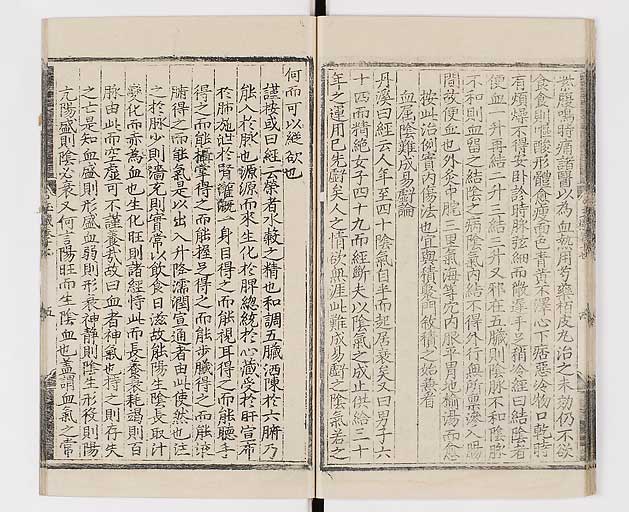 紫腹鳴時痛諸醫以為血熱用芍藥栢皮丸治之未効仍不欲
食食則嘔酸形體食瘦面色青黃不澤心下痞惡冷物口乾時
有煩燥不得安卧診時脉弦細而微遲手足稍冷經曰結陰者
便血一升再結二升三結三升又邪在五臟則陰脉不和陰脉
不和則血留之結陰之病陰氣內結不得外行血無所稟滲入腸
間故便血也外灸中脘三里氣海等穴內服平胃地榆湯而愈
按此治例實內傷法也宜與積聚門敘積之始兼看
血屬陰難成易虧論
丹溪曰經云人年至四十陰氣自半而起居衰矣又曰男子六
十四而精絕女子四十九而經斷夫以陰氣之成止供給三十
年之運用已先虧矣人之情欲無涯此難成易虧之陰氣若之
何而可以縱欲也
謹按或曰經云榮者水穀之精也和調五臟洒陳於六腑乃
能入於脉也源源而來生化於脾總統於心藏受於肝宣布
於肺施泄於腎灌溉一身目得之而能視耳得之而能聽手
得之而能攝掌得之而能握足得之而能步臟得之而能液
腑得之而能氣是以出入升降濡潤宣通者由此使然也注
之於脉少則濇充則實常以飲食日滋故能陽生陰長取汁
變化而赤為血也生化旺則諸經恃此而長養衰耗竭則百
脉由此而空虛可不謹養哉故曰血者神氣也持之則存矣
之亡是知血盛則形盛血弱則形衰神靜則陰生形役則陽
亢陽盛則陰必衰又何言陽旺而生陰血也蓋謂血氣之常
五